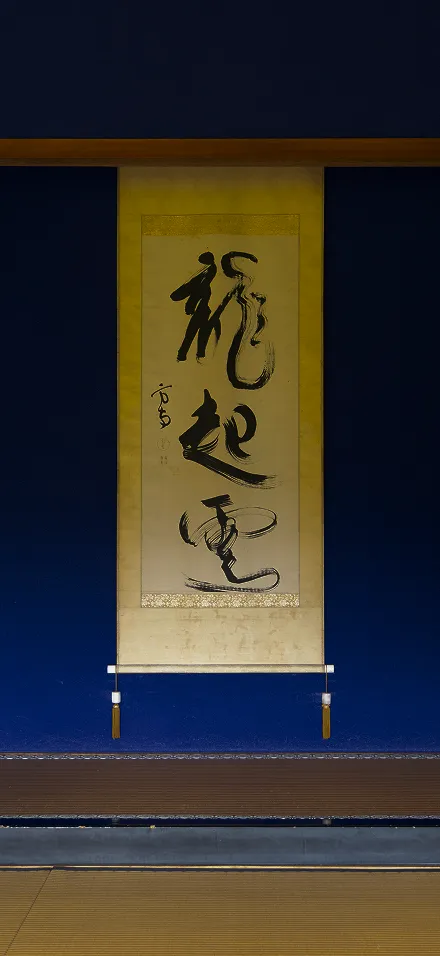 龍起雲